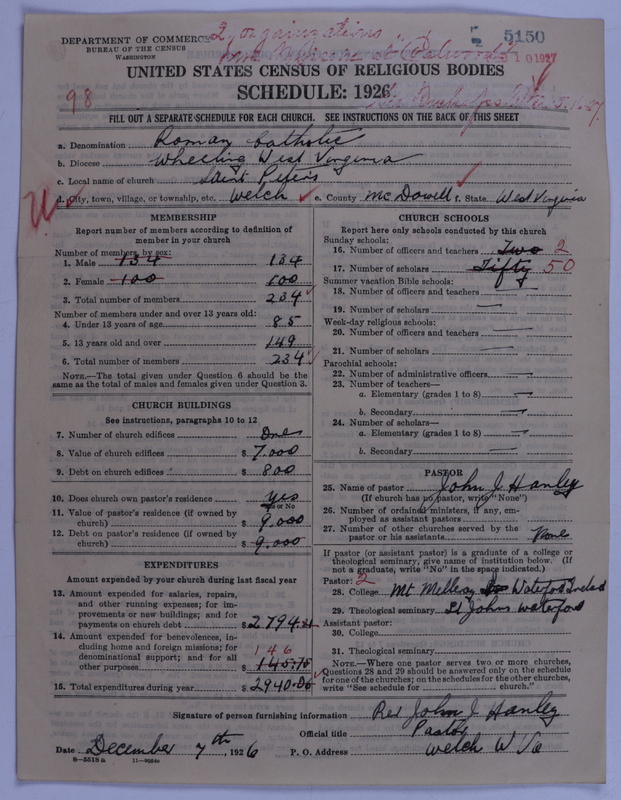 DEPARTMENT OF COMMERCE
BUREAU OF THE CENSUS
WASHINGTON
2 organizations
5150
UNITED STATES CENSUS OF RELIGIOUS BODIES
SCHEDULE: 1926
98
FILL OUT A SEPARATE SCHEDULE FOR EACH CHURCH. SEE INSTRUCTIONS ON THE BACK OF THIS SHEET
a. Denomination Roman Catholic
b. Diocese Wheeling West Virginia
c. Local name of church Saint Peters
d. City, town, village, or township, etc. Welch e. County McDowell f. State West Virginia
MEMBERSHIP
Report number of members according to definition of
member in your church
Number of members, by sex:
1. Male 134 134
2. Female 100 100
3. Total number of members 234
Number of members under and over 13 years old:
4. Under 13 years of age 85
5. 13 years old and over 149
6. Total number of members 234
NOTE.—The total given under Question 6 should be
same as the total of males and females given under Question 3.
CHURCH BUILDINGS
See instructions, paragraphs 10 to 12
7. Number of church edifices One
8. Value of church edifices $ 7,000
9. Debt on church edifices $ 800
10. Does church own pastor's residence Yes
Yes or No
11. Value of pastor's residence (if owned by
church) $ 9,000
12. Debt on pastor's residence (if owned by
church) $ 9,000
EXPENDITURES
Amount expended by your church during last fiscal year
13. Amount expended for salaries, repairs,
and other running expenses; for im-
provements or new buildings; and for
payments on church debt $ 2794.
14. Amount expended for benevolences, in-
cluding home and foreign missions; for
denominational support; and for all
other purposes 146 $ 145.75
15. Total expenditures during year $ 2940.00
CHURCH SCHOOLS
Report here only schools conducted by this church
Sunday schools:
16. Number of officers and teachers Two 2
17. Number of scholars Fifty 50
Summer vacation Bible schools:
18. Number of officers and teachers —
19. Number of scholars —
Week-day religious schools:
20. Number of officers and teachers —
21. Number of scholars —
Parochial schools:
22. Number of administrative officers —
23. Number of teachers—
a. Elementary (grades 1 to 8) —
b. Secondary —
24. Number of scholars—
a. Elementary (grades 1 to 8) —
b. Secondary —
PASTOR
25. Name of pastor John J Hanley
(If church has no pastor, write "None")
26. Number of ordained ministers, if any, em-
ployed as assistant pastors
27. Number of other churches served by the
pastor or his assistants None
If pastor (or assistant pastor) is a graduate of a college or
theological seminary, give name of institution below. (If
not a graduate, write "No" in the space indicated.)
Pastor: 2
28. College Mt Melleray Waterford Ireland
29. Theological seminary St Johns Waterford
Assistant pastor:
30. College
31. Theological seminary
NOTE.—Where one pastor serves two or more churches,
Questions 28 and 29 should be answered only on the schedule
for one of the churches; on the schedules for the other churches,
write "See schedule for church."
Signature of person furnishing information Rev John J Hanley
Official title Pastor
Date December 7th, 1926 P. O. Address Welch W Va
8—5518a 11—9984